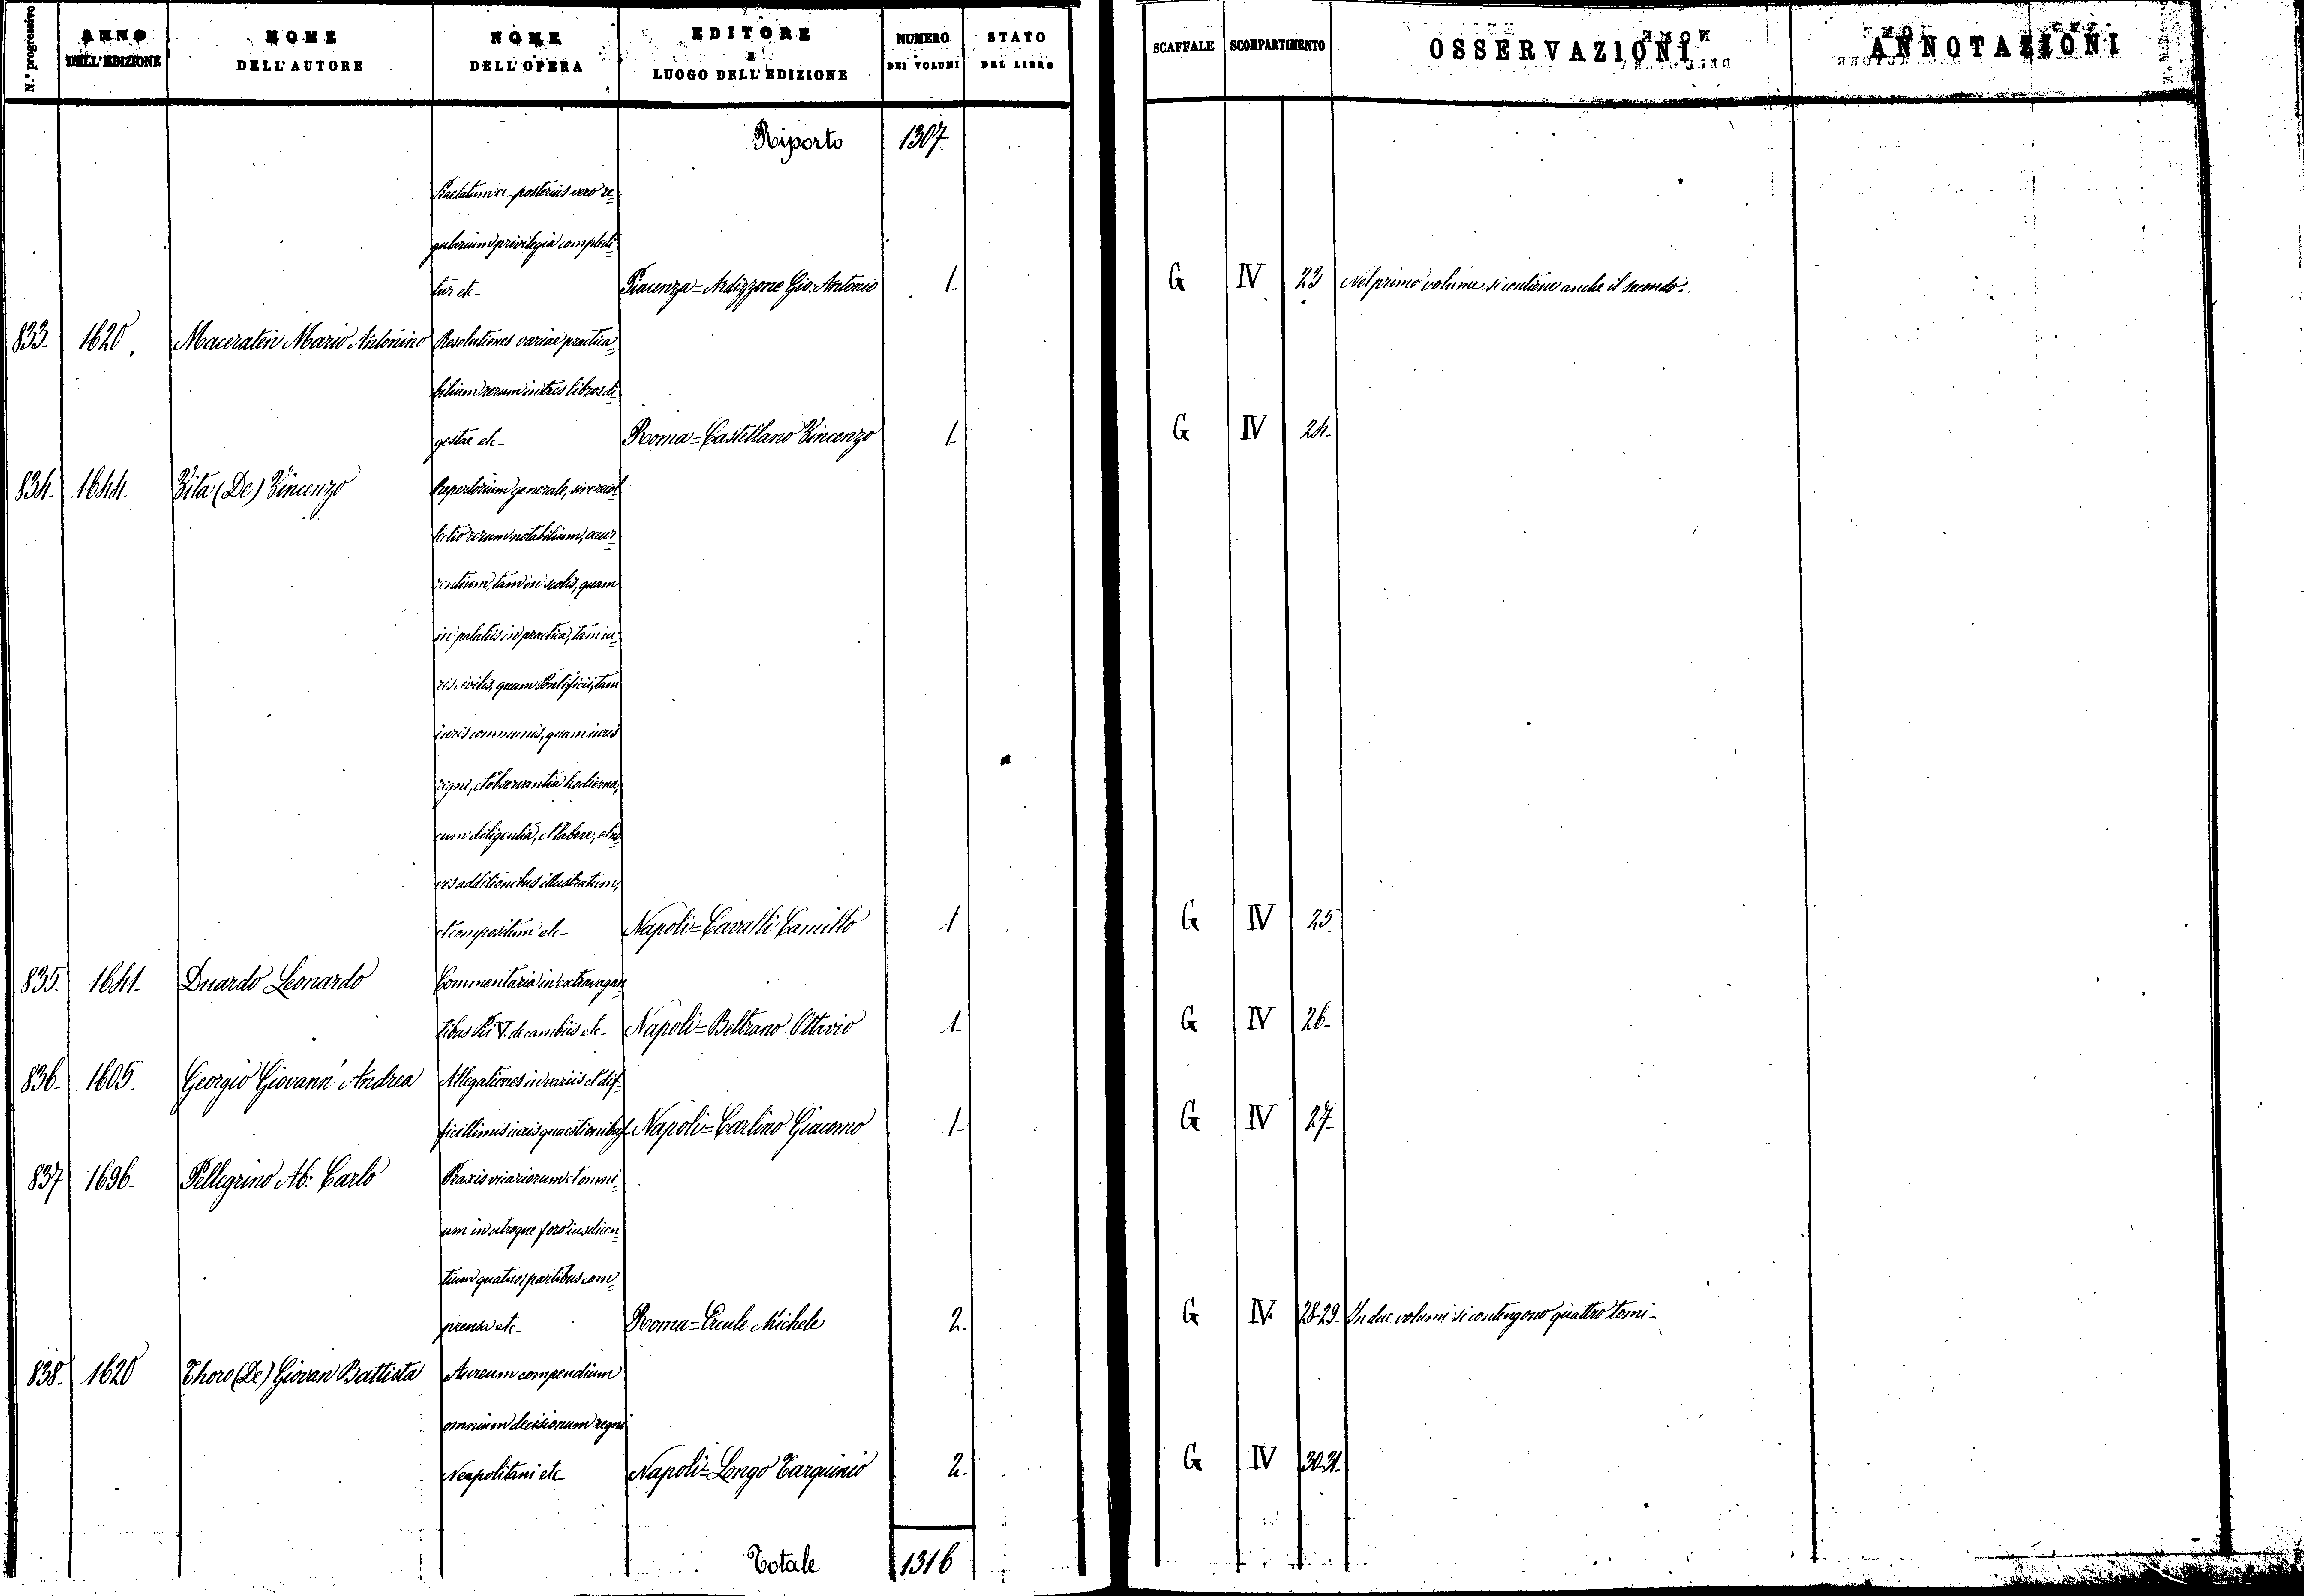 N.º progressivo
ANNO DELL'EDIZIONE
NOME DELL'AUTORE
NOME DELL'OPERA
EDITORE E LUOGO DELL'EDIZIONE
NUMERO DEI VOLUMI
STATO DEL LIBRO
SCAFFALE
SCOMPARTIMENTO
OSSERVAZIONI
ANNOTAZIONI
Riporto 1307
posterius vero re=
gularium privilegia complecti=
tur etc- Piacenza=Ardizzone Gio: Antonio 1- G IV 23 Nel primo volume si contiene anche il secondo-
833- 1620. Maceratin Mario Antonino Resolutiones variae practica=
bilium rerum in tres libros di=
gestae etc- Roma=Castellano Vincenzo 1- G IV 24-
834- 1644- Vita (De) Vincenzo Repertorium generale, sive recol
lectio rerum notabilium, occur=
rentium, tam in scolis, quam
in palatiis in practica, tam iu=
ris civilis, quam Pontificii, tam
iuris communis, quam iuris
regni, et observantia hodierna,
cum diligentia, et labore, et no=
vis additionibus illustratum,
et compositum etc- Napoli=Cavalli Camillo 1 G IV 25
835. 1641- Duardo Leonardo Commentaria in extravagan
tibus Pii V. de cambiis etc- Napoli=Beltrano Ottavio 1- G IV 26-
836- 1605. Georgio Giovann' Andrea Allegationes in variis et dif=
ficillimis iuris quaestionibus Napoli=Carlino Giacomo 1- G IV 27-
837 1696- Pellegrino Ab: Carlo Praxis vicariorum et omni=
um in utroque foro iusdicen=
tium quatuor partibus com=
prensa etc- Roma=Ercule Michele 2. G IV 28-29- In due volumi si contengono quattro tomi-
838- 1620 Thoro (De) Giovan Battista Aureum compendium
omnium decisionum regni
Neapolitani etc Napoli=Longo Tarquinio 2. G IV 30-31-
Totale 1316